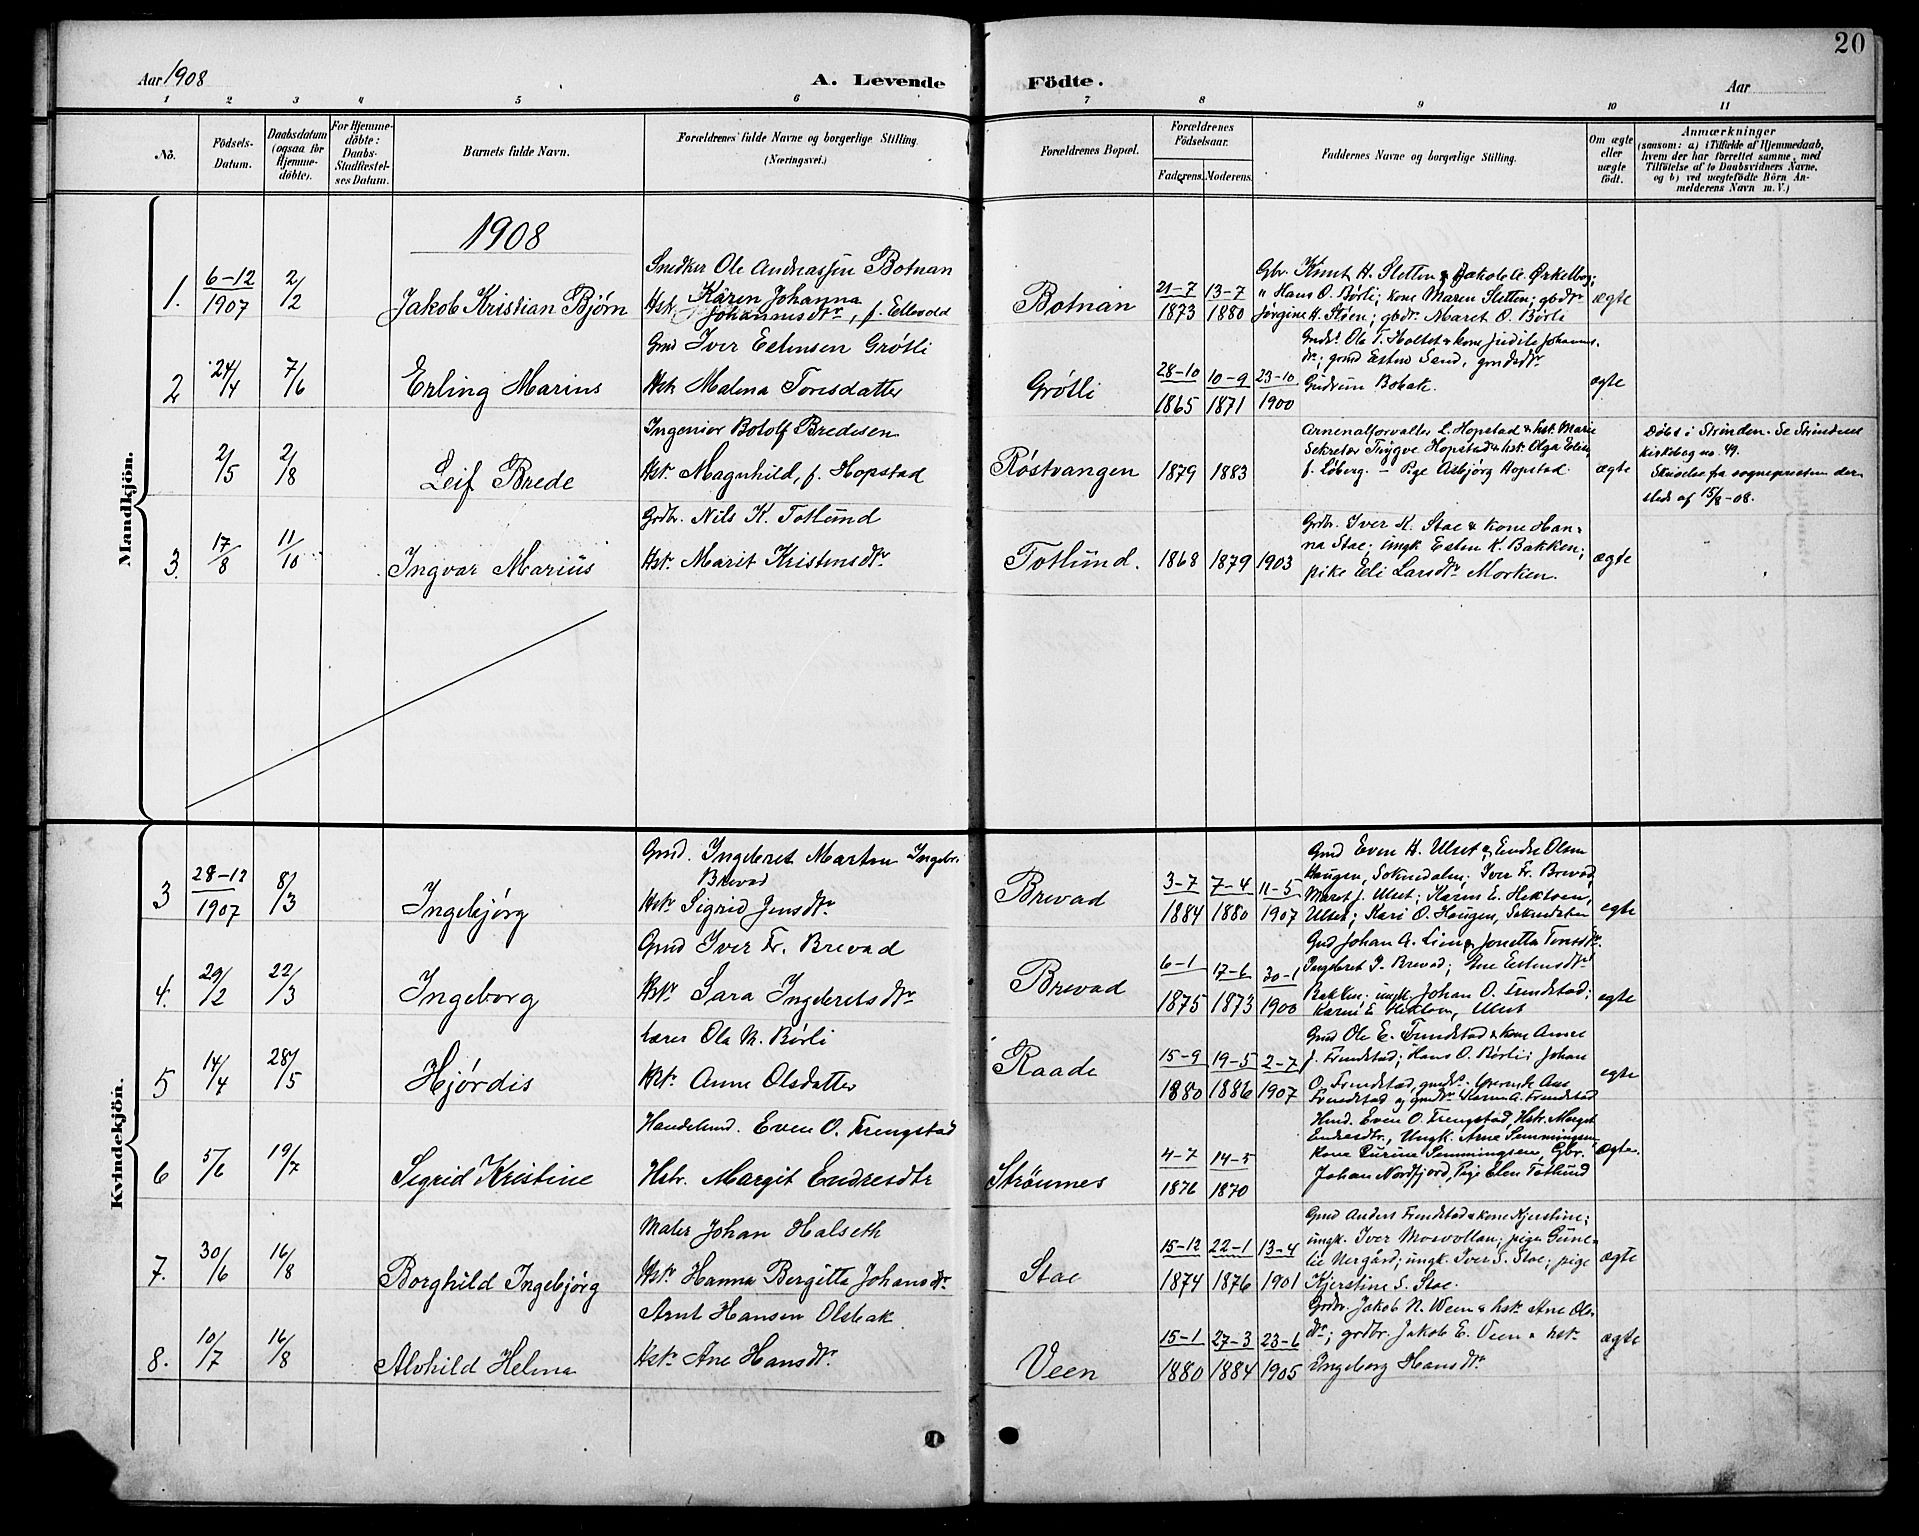 20
Aar 1908
A. Levende Födte.
Aar
1 2 3 4 5 6 7 8 9 10 11
No.
Födsels-Datum.
Daabsdatum (ogsaa for Hjemme-döbte).
For Hjemme-döbte: Daabs-Stadfæstel-ses Datum.
Barnets fulde Navn.
Forældrenes fulde Navne og borgerlige Stilling.
(Næringsvei.)
Forældrenes Bopæl.
Forældrenes Födselsaar.
Faderens. Moderens.
Faddernes Navne og borgerlige Stilling.
Om ægte eller uægte födt.
Anmærkninger
(saasom: a) i Tilfælde af Hjemmedaab,
hvem der har forrettet samme, med
Tilföielse af to Daabsvidners Navne,
og b) ved uægtefödte Börn An-
melderens Navn m. V.)
Mandkjön.
1908
1. 6-12 1907 2/2
Jakob Kristian Bjørn
Snedker Ole Andreassen Botnan
Hst. Karen Johanna
Johannesdtr, f. Ellevold
Botnan
21-7 1873 13-7 1880
Gbr. Knut H. Sletten & Jakob Ørkelbog;
" Hans O. Børli; kone Maren Sletten; gbdtr
Jørgine H. Støen; gbdtr. Maret O. Børli
ægte
2 24/4 7/6
Erling Marius
Gmd Iver Estensen Grøtli
Hst. Malena Toresdatter
Grøtli
28-10 1865 10-9 1871 23-10 1900
Gmds. Ole T. Holtet & kone Judile Johanns-
dtr; gmd Esten Sand, gmdsdtr
Gudrun Bobak.
ægte
2/5 2/8
Leif Brede
Ingeniør Botolf Bredesen
Hst. Magnhild, f. Hopstad
Røstvangen
1879 1883
Arsenalforvalter L. Hopstad & hst. Marie
Sekretær Trygve Hopstad & hst. Olga Elise
f. Løberg. - Pige Asbjørg Hopstad.
ægte
Døbt i Strinden. Se Strindens
kirkebog no. 49.
Skrivelse fra sognepresten der-
steds af 15/8-08.
3. 17/8 11/10
Ingvar Marius
Grdbr. Nils K. Totlund
Hst. Marit Kristensdtr
Totlund.
1868 1879 1903
Grdbr. Iver K. Stae & kone Han-
na Stae; ungk Esten K. Bakken;
pike Eli Larsdtr Morken.
ægte
Kvindekjön.
3 28-12 1907 8/3
Ingebjørg
Gmd. Ingebret Martin Ingebr.
Brevad
Hst. Sigrid Jensdtr
Brevad
3-7 1884 7-4 1880 11-5 1907
Gmd Even H. Ulset & Endre Olsen
Haugen, Soknedalen; Iver Fr. Brevad,
Maret J. Ulset; Karen E. Hektoen,
Ulset; Kari O. Haugen, Soknedalen
egte
4. 29/2 22/3
Ingeborg
Gmd Iver Fr. Brevad
Hst. Sara Ingebretsdtr
Brevad
6-1 1875 17-6 1873 30-1 1900
Gmd Johan A. Lien & Jonetta Tomsdtr.
Ingebret I. Brevad; Ane Estensdtr
Bakken; ungk. Johan O. Trøndstad;
Karen E Hektoen, Ulset
egte
5 14/4 28/5
Hjørdis
Lærer Ola M. Børli
Hst. Anne Olsdatter
Raade
15-9 1880 19-5 1886 2-7 1907
Gmd Ole E. Frendstad & kone Anne
J. Frendstad; Hans O. Børli; Johan
O. Frendstad, gmds.
Frendstad og gmdtr Karen A. Frendstad
egte
6 5/6 19/7
Sigrid Kristine
Handelsmd. Even O. Trengstad
Hstr. Margit Endresdtr
Strømmes
4-7 1876 14-5 1870
Hmd. Even O. Trengstad, Hstr. Margit
Endresdtr., Ungk. Arne Semmingsen
kone Turine Semmingsen, Gbr.
Johan Nordfjord, Pige Elen Totlund
ægte.
7. 30/6 16/8
Borghild Ingebjørg
Maler Johan Halseth
Hst. Hanna Bergitta Johansdtr
Stae
15-12 1874 22-1 1876 13-4 1901
Gmd Anders Frendstad & kone Kjerstine;
ungk. Iver Mosvollan; pige Gune-
lie Nergård; ungk. Iver S. Stae; pige
Kjerstine S. Stae.
ægte
8. 10/7 16/8
Alvhild Helena
Arnt Hansen Olsbak
Hst. Ane Hansdtr
Veen
15-1 1880 27-3 1884 23-6 1905
Grdbr. Jakob N. Veen & hst. Ane Ols-
dtr; grdbr. Jakob E. Veen & hst.
Ingeborg Hansdtr
ægte